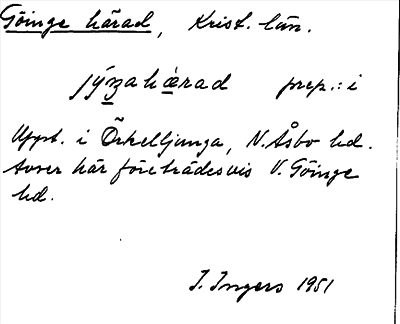 Göinge härad, Krist. län.
jýŋahæ̀rad prep.: i
Uppt. i Örkelljunga, N. Åsbo hd.
Avser här företrädesvis V. Göinge
hd.
I. Ingers 1951